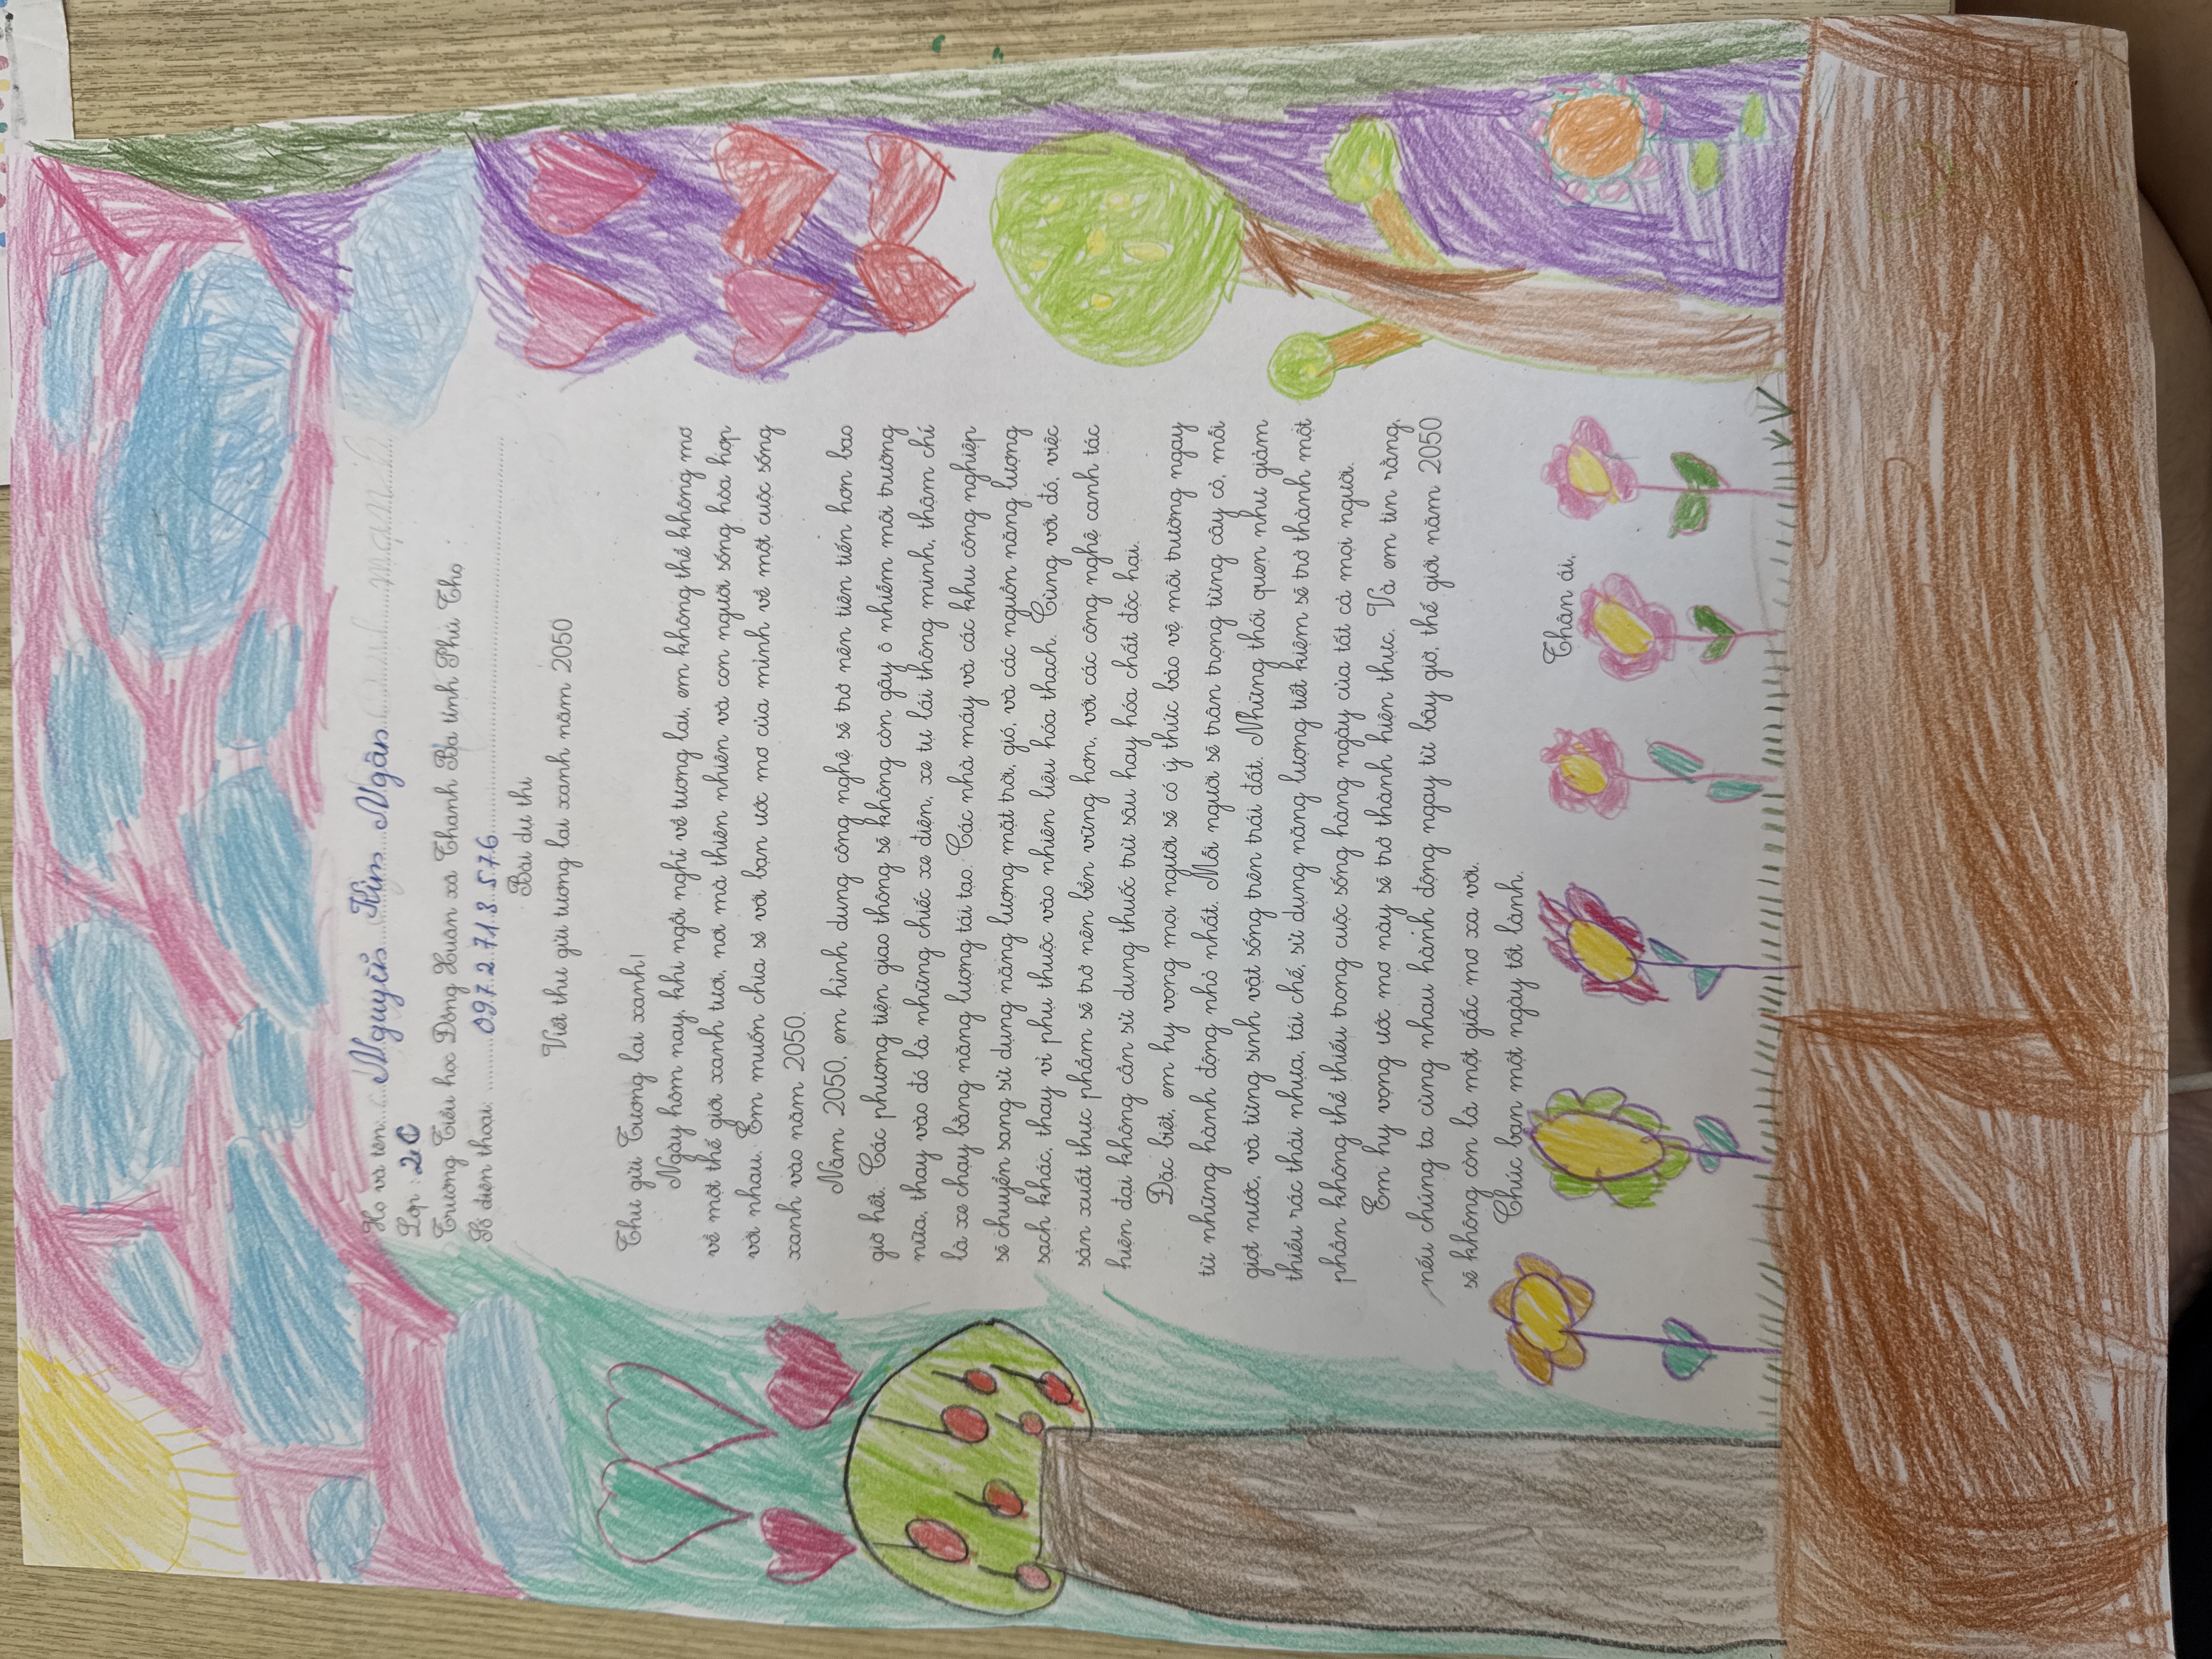 Họ và tên: Nguyễn Kim Ngân
Lớp: 2C
Trường Tiểu học Đông Xuân xã Thanh Ba tỉnh Phú Thọ
Số điện thoại: 0972718576
Bài dự thi
Viết thư gửi tương lai xanh năm 2050
Thư gửi Tương lai xanh!
Ngày hôm nay, khi ngồi nghĩ về tương lai, em không thể không mơ
về một thế giới xanh tươi, nơi mà thiên nhiên và con người sống hòa hợp
với nhau. Em muốn chia sẻ với bạn ước mơ của mình về một cuộc sống
xanh vào năm 2050.
Năm 2050, em hình dung công nghệ sẽ trở nên tiên tiến hơn bao
giờ hết. Các phương tiện giao thông sẽ không còn gây ô nhiễm môi trường
nữa, thay vào đó là những chiếc xe điện, xe tự lái thông minh, thậm chí
là xe chạy bằng năng lượng tái tạo. Các nhà máy và các khu công nghiệp
sẽ chuyển sang sử dụng năng lượng mặt trời, gió, và các nguồn năng lượng
sạch khác, thay vì phụ thuộc vào nhiên liệu hóa thạch. Cùng với đó, việc
sản xuất thực phẩm sẽ trở nên bền vững hơn, với các công nghệ canh tác
hiện đại không cần sử dụng thuốc trừ sâu hay hóa chất độc hại.
Đặc biệt, em hy vọng mọi người sẽ có ý thức bảo vệ môi trường ngay
từ những hành động nhỏ nhất. Mỗi người sẽ trân trọng từng cây cỏ, mỗi
giọt nước, và từng sinh vật sống trên trái đất. Những thói quen như giảm
thiểu rác thải nhựa, tái chế, sử dụng năng lượng tiết kiệm sẽ trở thành một
phần không thể thiếu trong cuộc sống hàng ngày của tất cả mọi người.
Em hy vọng ước mơ này sẽ trở thành hiện thực. Và em tin rằng,
nếu chúng ta cùng nhau hành động ngay từ bây giờ, thế giới năm 2050
sẽ không còn là một giấc mơ xa vời.
Chúc bạn một ngày tốt lành.
Thân ái,